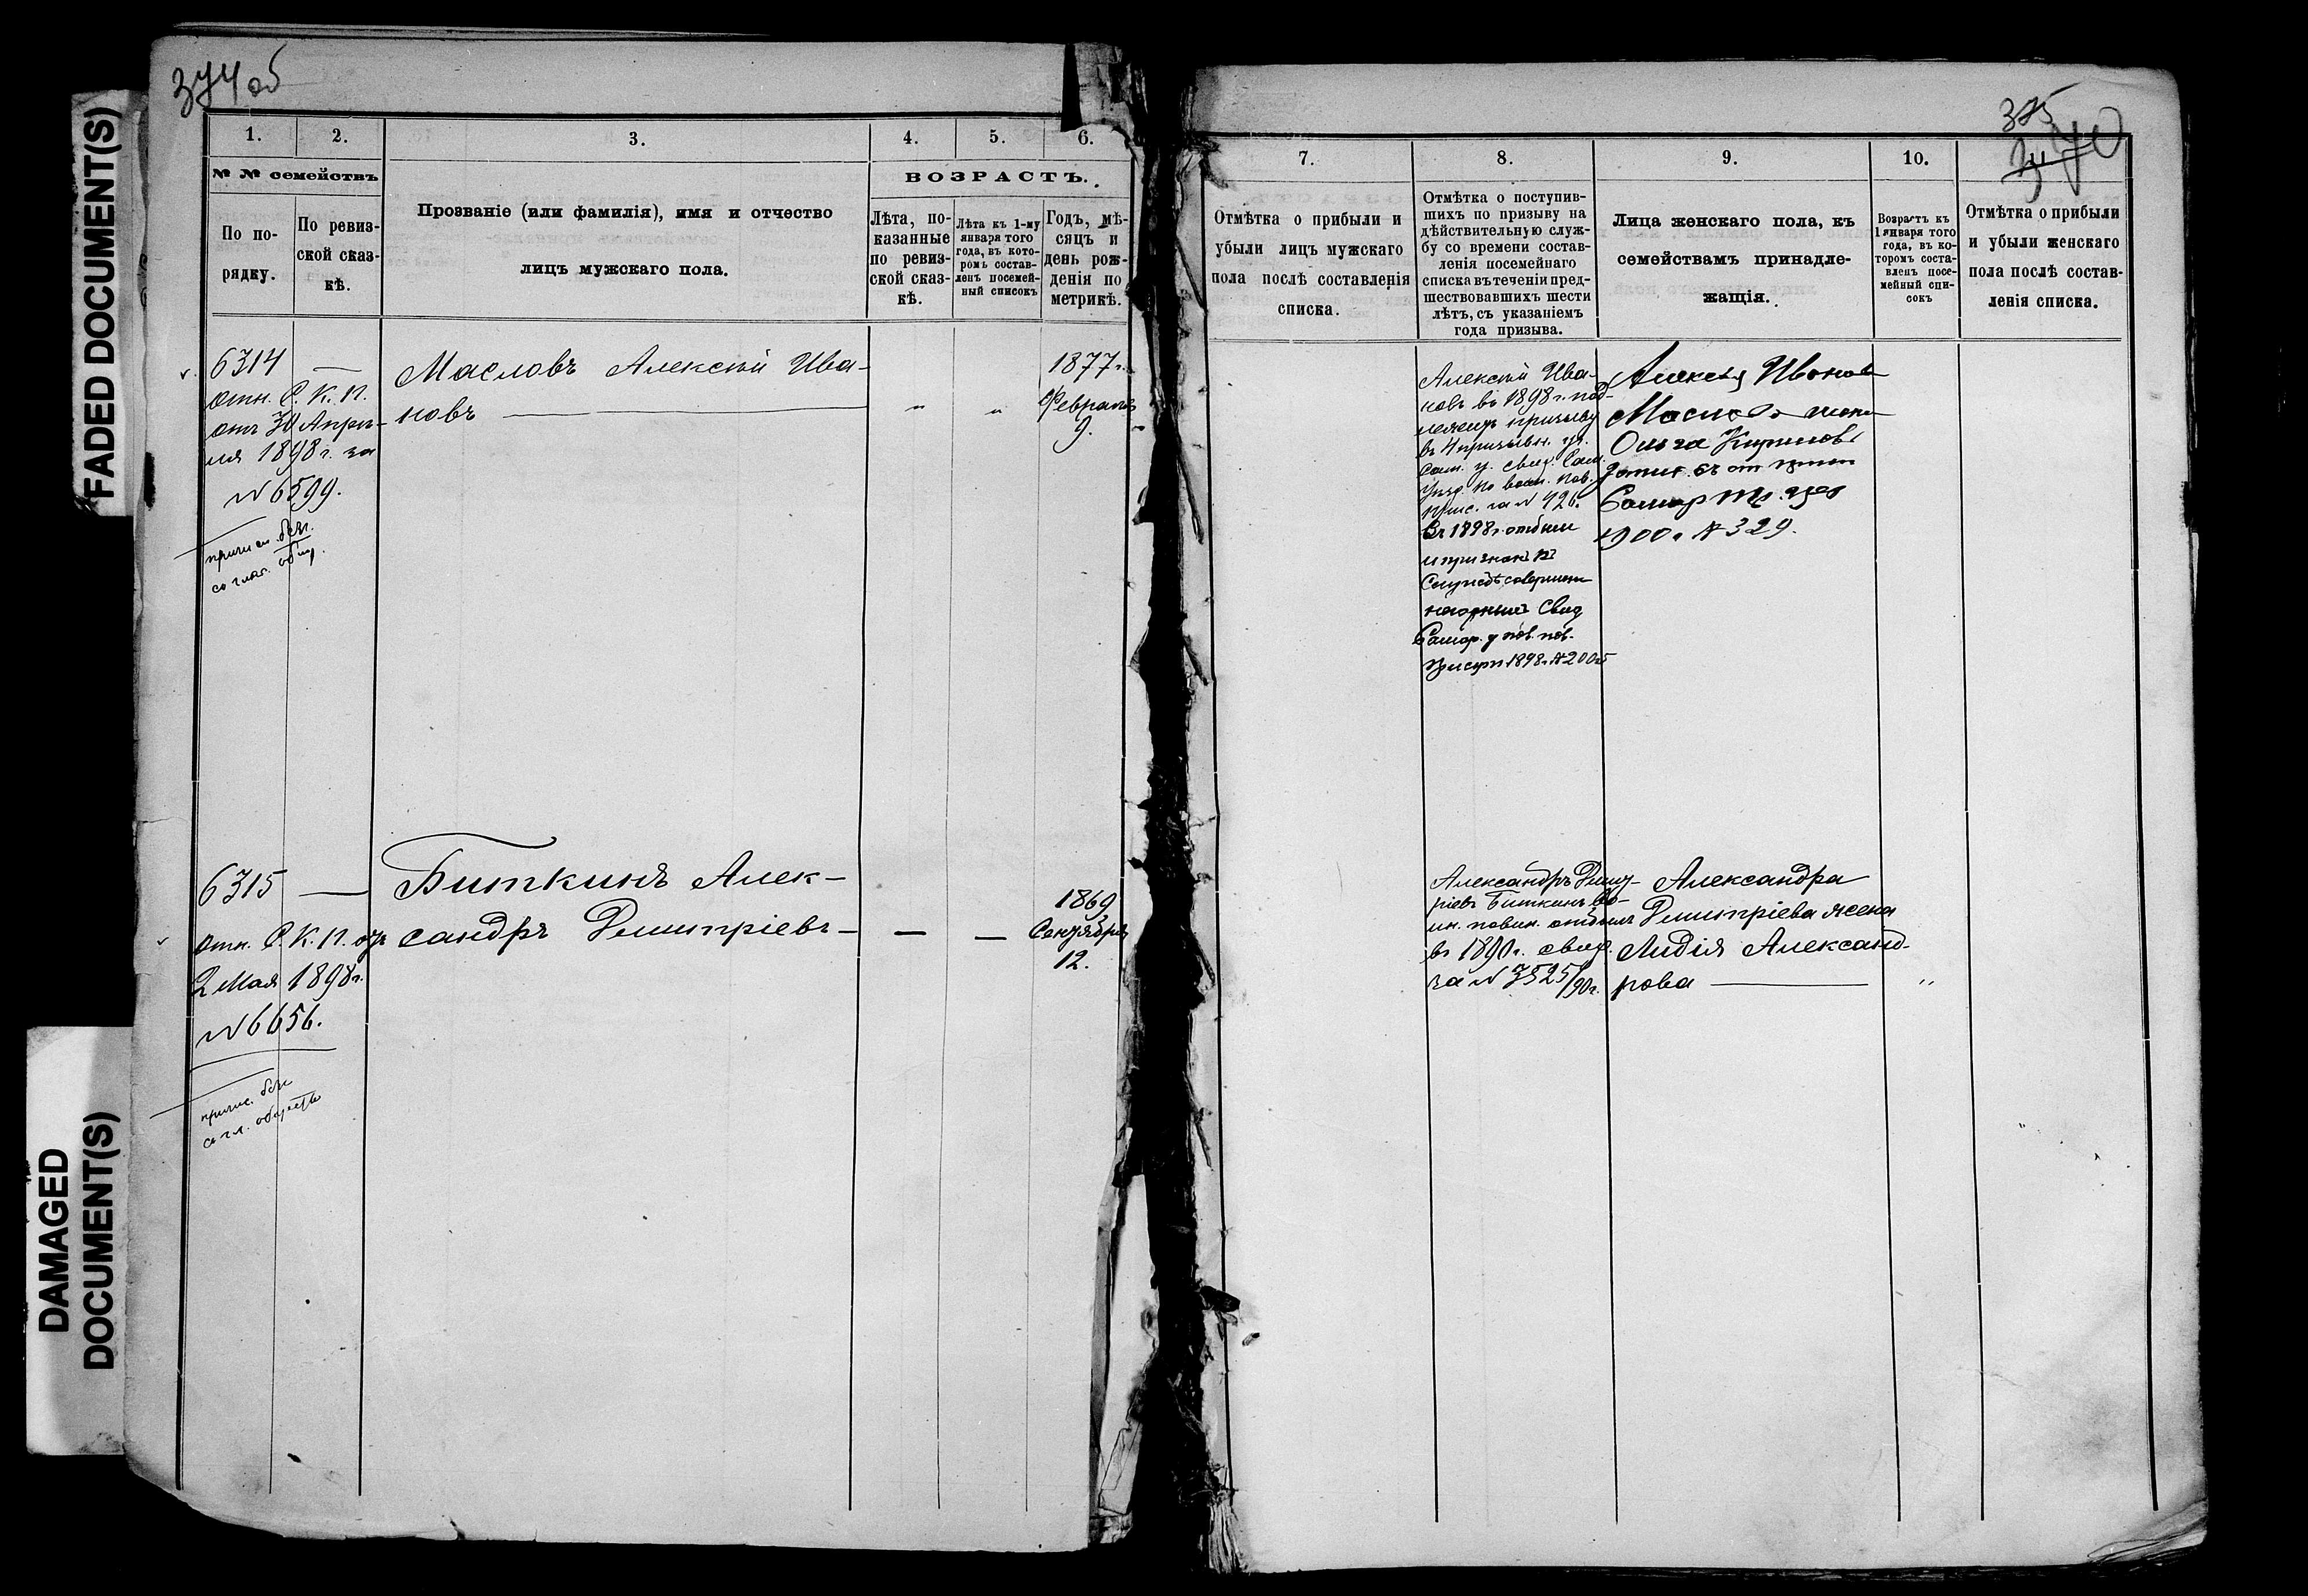 FADED DOCUMENT(S)
DAMAGED
DOCUMENT(S)
374 об
1. 2. 3. 4. 5. 6.
№ № семействъ
По по-
рядку.
По ревиз-
ской сказ-
кѣ.
Прозваніе (или фамилія), имя и отчество
лицъ мужскаго пола.
ВОЗРАСТЪ.
Лѣта, по-
казанные
по ревиз-
ской сказ-
кѣ.
Лѣта къ 1-му
января того
года, въ кото-
ромъ состав-
ленъ посемей-
ный списокъ
Годъ, мѣ-
сяцъ и
день рож-
денія по
метрикѣ.
6314 —
отн. С. К. П.
отъ 30 Апрѣ-
ля 1898 г. за
№ 6599.
причисл. безъ
соглас. общ.
Масловъ Алексѣй Ива-
новъ
" "
1877 г.
Февраля
9.
6315 —
отн. С. К. П. отъ
2 Мая 1898 г.
№ 6656.
причис. безъ
согл. общества
Биткинъ Алек-
сандръ Дмитріевъ
— —
1869
Сентября
12.
375
340
7. 8. 9. 10.
Отмѣтка о прибыли и
убыли лицъ мужскаго
пола послѣ составленія
списка.
Отмѣтка о поступив-
шихъ по призыву на
дѣйствительную служ-
бу со времени состав-
ленія посемейнаго
списка въ теченіи пред-
шествовавшихъ шести
лѣтъ, съ указаніемъ
года призыва.
Лица женскаго пола, къ
семействамъ принадле-
жащія.
Возрастъ къ
1 января того
года, въ ко-
торомъ соста-
вленъ посе-
мейный спи-
сокъ
Отмѣтка о прибыли
и убыли женскаго
пола послѣ состав-
ленія списка.
Алексѣй Ива-
новъ въ 1898 г. под-
лежитъ призыву
въ 4 призывн. уч.
Сам. у. свид. Сам.
по воин. пов.
прис. за № 426.
Въ 1898 г. отбылъ
и признанъ къ
службѣ совершен
негоднымъ Свид
Самар. у пов.
присут 1898 г. № 2005
Алексѣя Иванов
Маслова жена
Ольга
Самар
1900 г. № 329.
Александръ Дмит-
ріевъ Биткинъ во-
ин. повин. отбылъ
въ 1890 г. свид.
за № 3525/90 г.
Александра
Дмитріева жена
Лидія Александ-
рова
"